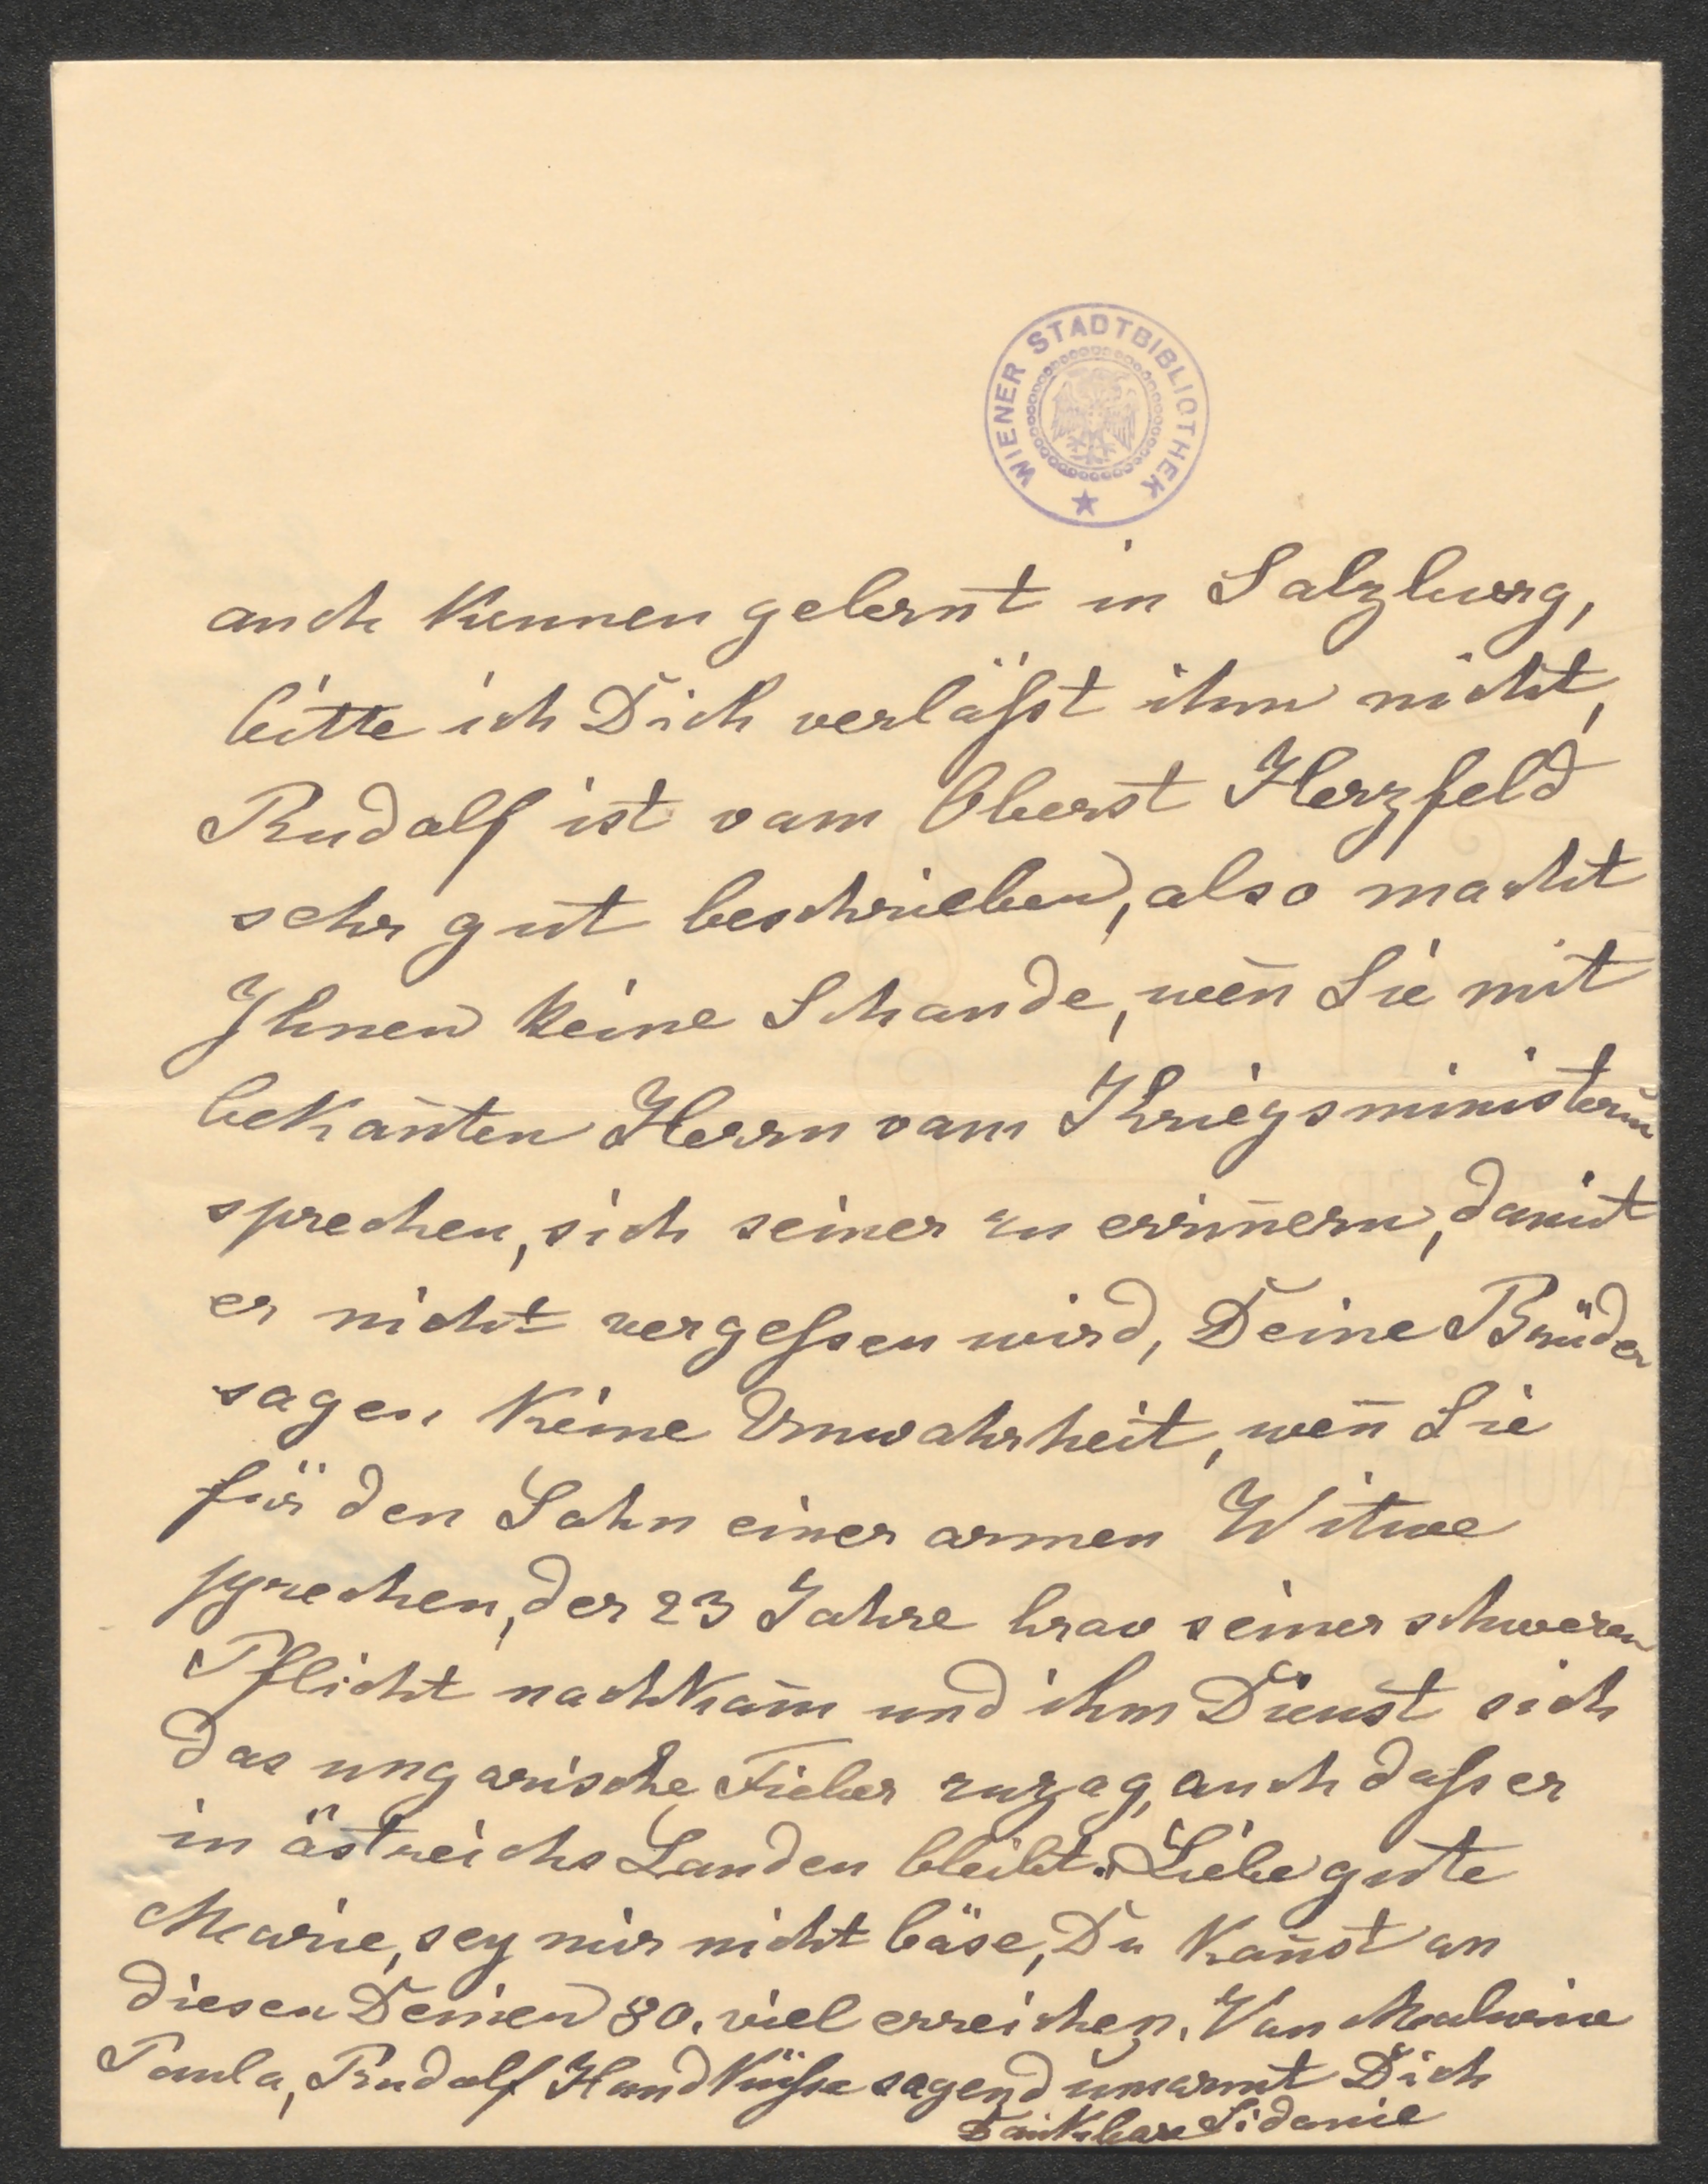 WIENER STADTBIBLIOTHEK
auch kennen gelernt in Salzburg,
bitte ich Dich verläßt ihm nicht,
Rudolf ist vom Oberst Herzfeld
sehr gut beschrieben, also macht
Ihnen keine Schande, weñ Sie mit
bekañten Herrn vom Kriegsministerium
sprechen, sich seiner zu eriñern, damit
er nicht vergeßen wird, Deine Brüder
sagen keine Unwahrheit, weñ Sie
für den Sohn einer armen Witwe
sprechen, der 23 Jahre brav seiner schweren
Pflicht nachkam̄ und ihm Dienst sich
das ungarische Fieber zuzog, auch daß er
in östreichs Landen bleibt. Liebe gute
Marie, sey mir nicht böse, Du kañst an
diesen Deinen 80. viel erreichen. Von Malwine
Paula, Rudolf Handküße sagend umarmt Dich
Dankbare Sidonie